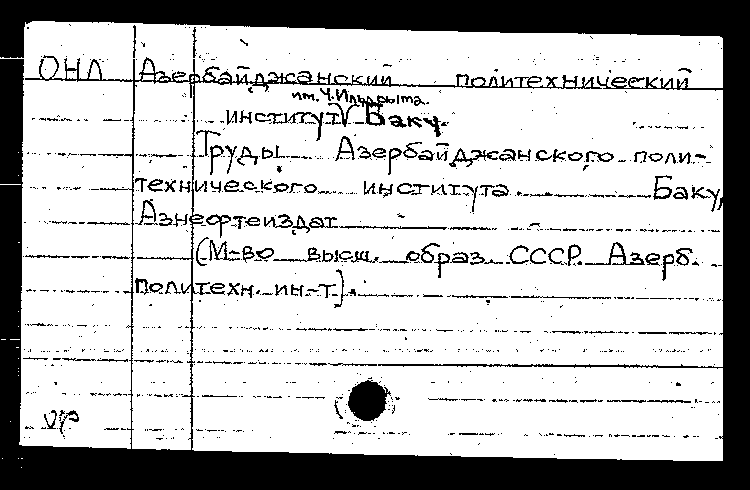 ОНЛ Азербайджанский политехнический
им. Ч. Ильдрыма.
институт Баку.
Труды Азербайджанского поли-
технического института. Баку,
Азнефтеиздат
(М-во высш. образ. СССР. Азерб.
политехн. ин-т).